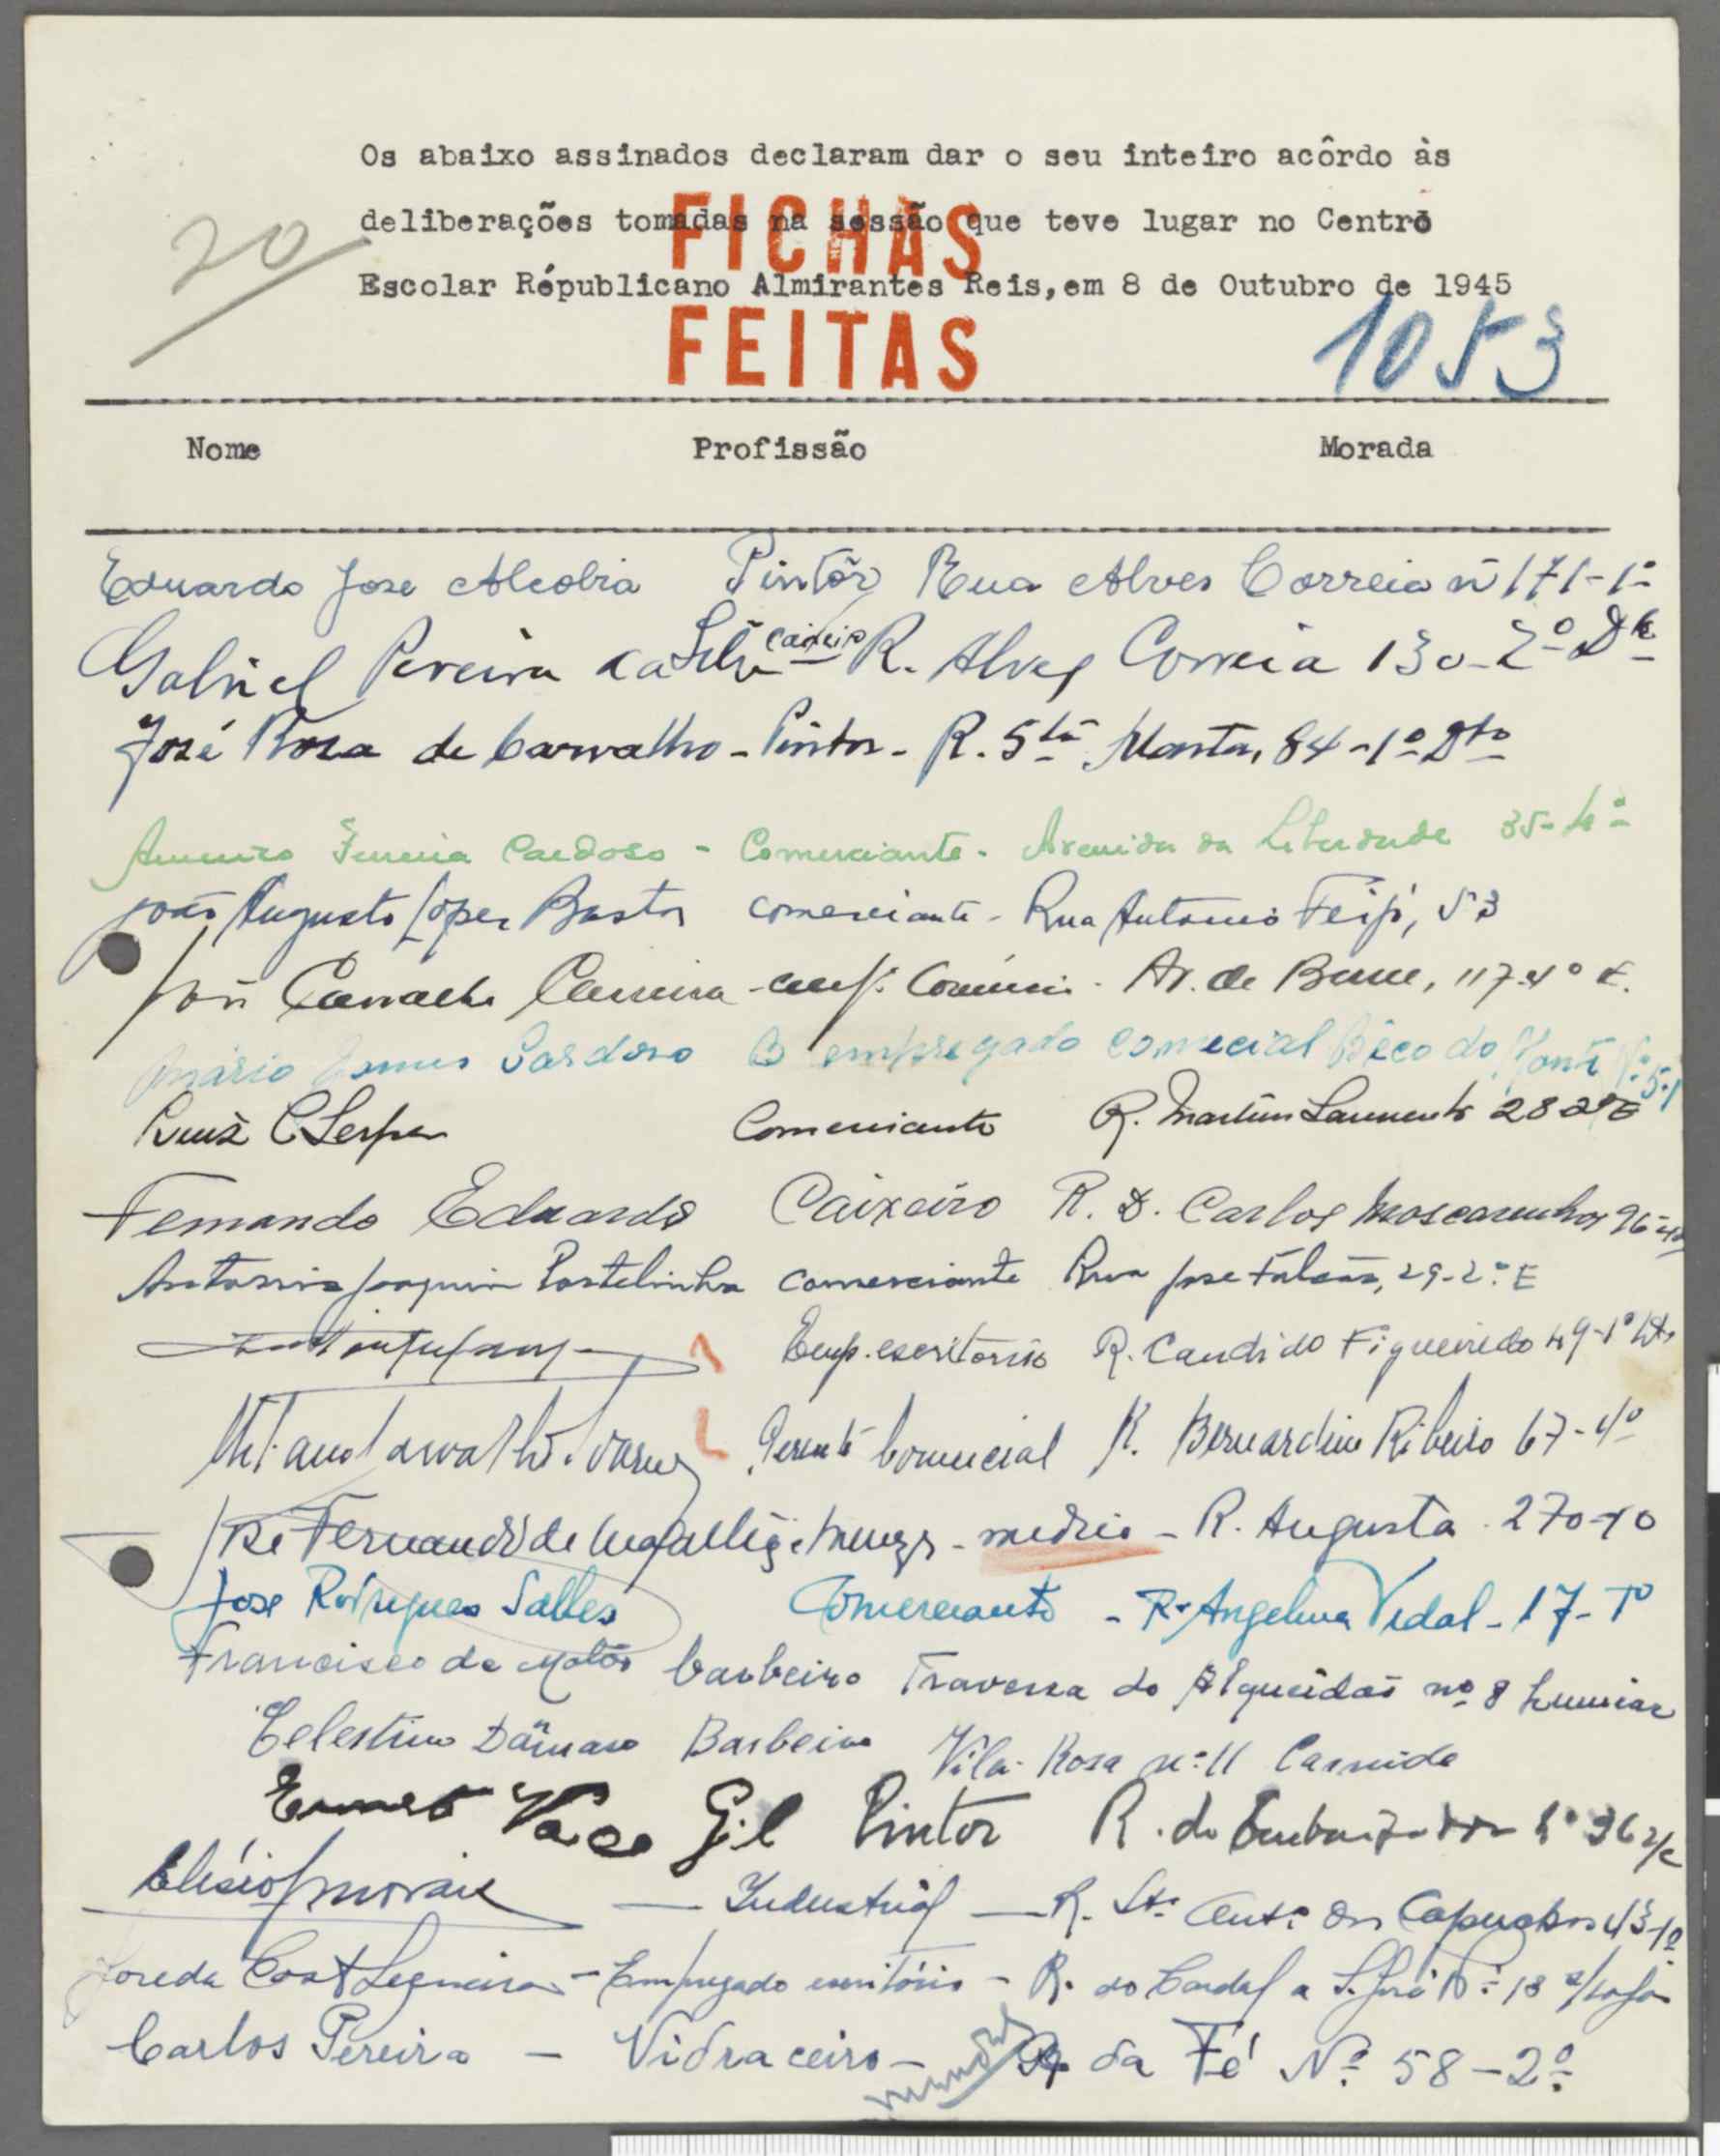 Os abaixo assinados declaram dar o seu inteiro acôrdo às
deliberações tomadas na sessão que teve lugar no Centro
Escolar Républicano Almirantes Reis, em 8 de Outubro de 1945
20
FICHAS
FEITAS
1053
Nome Profissão Morada
Eduardo Jose Alcobia Pintôr Rua Alves Correia nº 171-1º
Gabriel Pereira da Silva caixeiro R. Alves Correia 130-2º Dt
José Rosa de Carvalho - Pintor - R. Stª Marta, 84-1º Dto
Ferreira Cardoso - Comerciante - Avenida da Liberdade 35-4º
João Augusto Lopes Bastos comerciante - Rua Antonio Feijó, 53
João Carvalho - Av. de Berne, 117-4º E.
Mário Cardoso empregado comecial Bêco do Monte Nº 5-1
Luiz C Serpa Comerciante R. Martim Sarmento 28 2º E
Fernando Eduardo Caixeiro R. D. Carlos Mascarenhas 96-4º
Antonio Joaquim Postelinha Comerciante Rua Jose Falcão, 29-2º E
Emp. escritorio R. Candido Figueiredo 49-1º Dto
Gerente Comercial R. Bernardim Ribeiro 67-4º
José Fernando de Magalhães Menezes - medico - R. Augusta 270-
Jose Rodrigues Salles Comerciante - R. Angelina Vidal - 17-
Francisco de Matos barbeiro Travessa do Alqueidão nº 8 Lumiar
Celestino Dâmaso Barbeiro Vila Rosa nº 11 Carnide
Ernesto Vasco Gil Pintor R. do Embaixador Nº 36 r/c
Elísio Morais — Industrial — R. Stº Antº dos Capuchos 43-1º
Costa - Empregado escritório - R. do Cardal a S. José Nº 18
Carlos Pereira - Vidraceiro - R da Fé Nº 58-2º